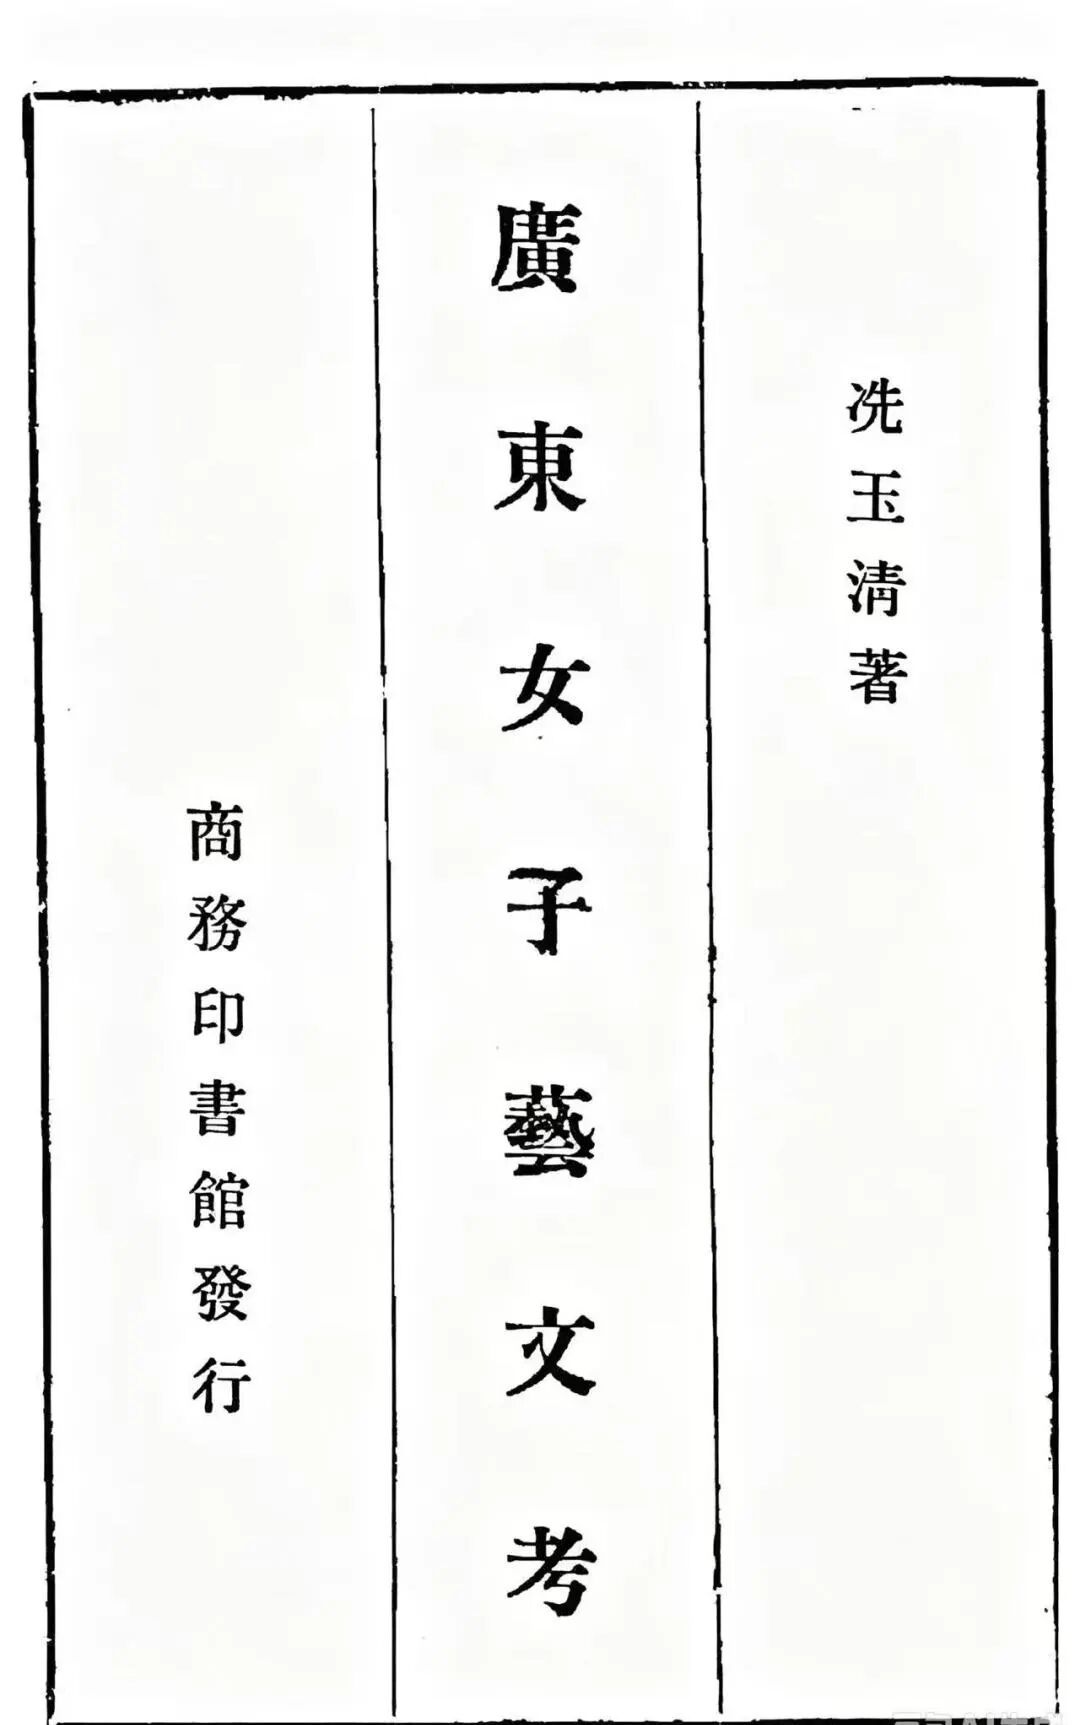 冼玉清著
廣東女子藝文考
商務印書館發行